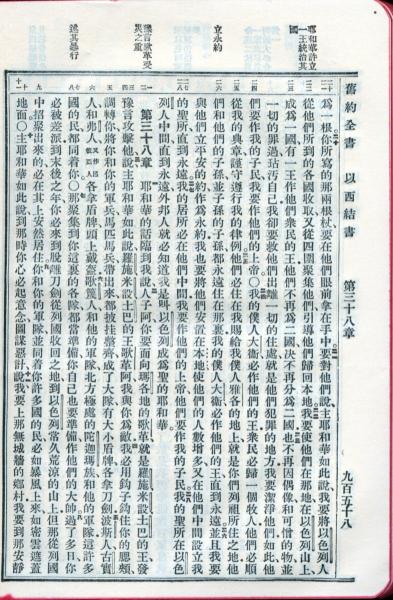 舊約全書 以西結書 第三十八章 九百五十八
耶和華許立一王統治其國
立永約
豫言歌革受災之重
述其暴行
為一根你所寫的那兩根杖要在他們眼前拿在手中要對他們說主耶和華如此說我要將以色列人
從他們所到的各國收取又從四圍聚集他們引導他們歸回本地我要使他們在那地在以色列山上
成為一國有一王作他們衆民的王他們不再為二國決不再分為二國也不再因偶像和可憎的物並
一切的罪過玷汚自己我卻要救他們出離一切的住處就是他們犯罪的地方我要潔淨他們如此他
們要作我的子民我要作他們的上帝○我的僕人大衛必作他們的王衆民必歸一個牧人他們必順
從我的典章謹守遵行我的律例他們必住在我賜給我僕人雅各的地上就是你們列祖所住之地他
們和他們的子孫並子孫的子孫都永遠住在那裏我的僕人大衛必作他們的王直到永遠並且我要
與他們立平安的約作為永約我也要將他們安置在本地使他們的人數增多又在他們中間設立我
的聖所直到永遠我的居所必在他們中間我要作他們的上帝他們要作我的子民我的聖所在以色
列人中間直到永遠外邦人就必知道我是叫以色列成為聖的耶和華
第三十八章 耶和華的話臨到我說人子阿你要面向瑪各地的歌革就是羅施米設土巴的王發
豫言攻擊他說主耶和華如此說羅施米設土巴的王歌革阿我與你為敵我必用鉤子鉤住你的腮頰
調轉你將你和你的軍兵馬匹馬兵帶出來都披挂整齊成了大隊有大小盾牌各拿刀劍波斯人古實
人和弗人各拿盾牌頭上戴盔歌篾人和他的軍隊北方極處的陀迦瑪族和他的軍隊這許多
國的民都同着你○那聚集到你這裏的各隊都當準備你自己也要準備作他們的大帥過了多日你
必被差派到末後之年你必來到脫離刀劍從列國收回之地到以色列常久荒涼的山上但那從列國
中招聚出來的必在其上安然居住你和你的軍隊並同着你許多國的民必如暴風上來如密雲遮蓋
地面○主耶和華如此說到那時你心必起意念圖謀惡計說我要上那無城牆的鄉村我要到那安靜